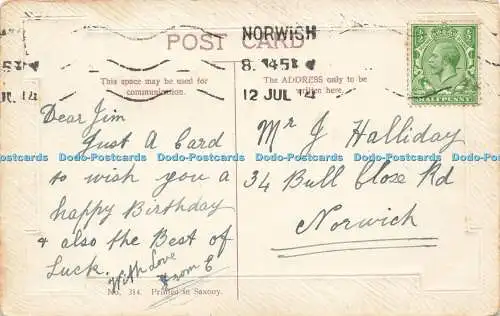 NORWISH
POST CARD
8.45
12 JUL 14
JUL 14
HALFPENNY
This space may be used for
communication.
The ADDRESS only to be
written here.
Dear Jim
Just A Card
to wish you a
happy Birthday
& also the Best of
Luck.
With Love
From C
Mr J Halliday
34 Bull Close Rd
Norwich
No. 314. Printed in Saxony.
Dodo-Postcards Dodo-Postcards Dodo-Postcards Dodo-Postcards Dodo-Postcards Dodo-Postcards